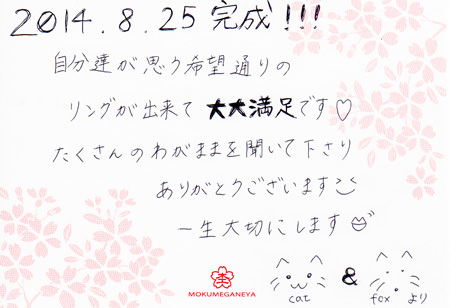 2014.8.25 完成!!!
自分達が思う希望通りの
リングが出来て 大大満足です♡
たくさんのわがままを聞いて下さり
ありがとうございます
一生大切にします
MOKUMEGANEYA
cat & fox より